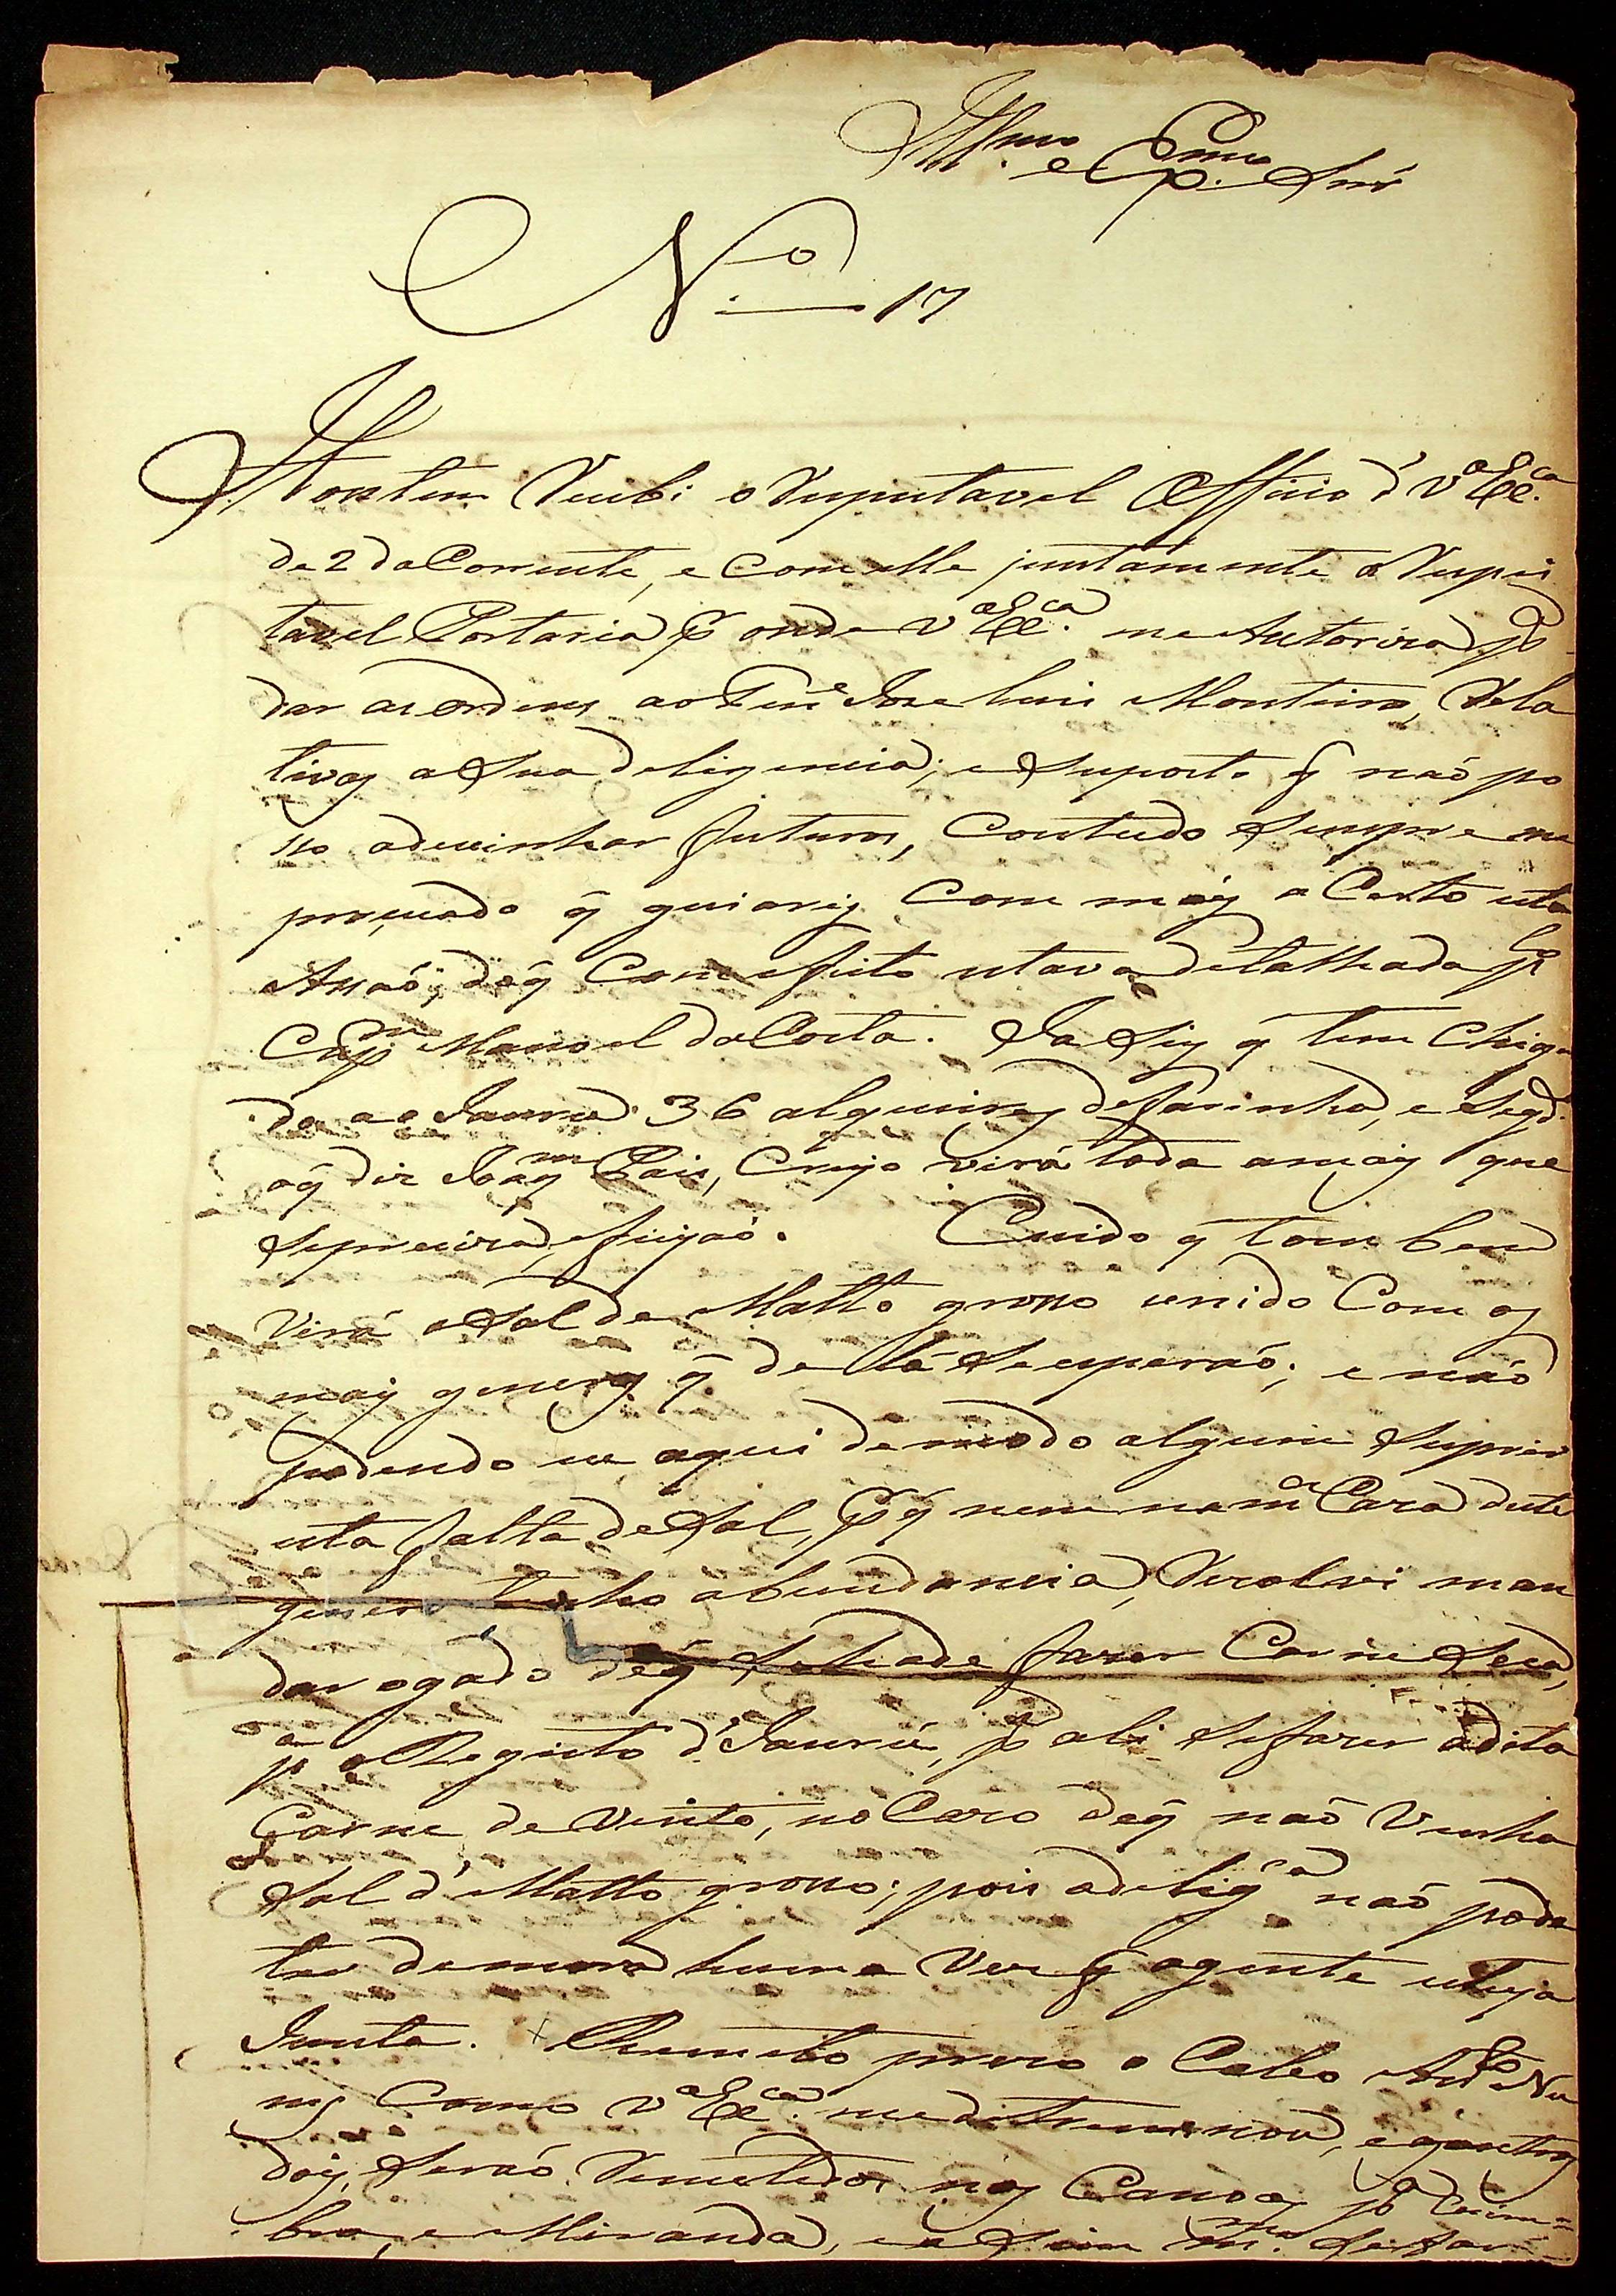 Illmo e Exmo Snr
No 17
Hontem Recebi o Respeitavel Officio d' Va Exca
de 2 do Corrente, e com elle juntamente a Respei
tavel Portaria pr onde Va Exca me Autoriza pa
dar as ordens ao Tene Joze Luis Monteiro, Rela
tivas a Sua deligencia; e Suposto q não po
sso adevinhar futuros, Contudo Sempre me
q com mais a Certo esta
Acsaõ; do q Com efeito estava detalhada pelo
Capm Manoel da Costa. Ja q tem Chega
do a o Jauru 36 alqueires de farinha, e Segdo
oq diz Joaqm Pais, Creyo virá toda a mais que
Se preciza, e feijaõ. Cuido q tom bem
Virá o Sal de Matto grosso unido Com os
mais generos q de lá Se esperaõ; e naõ
podendo se aqui de modo algum Suprir
esta falta de Sal, pr q nem na ma Caza deste
genero tenho abundancia, Rezolvi man
dar o gado de q Se hade fazer Carne Seca,
pa o Registo d' Jaurú, pa ali Se fazer a dita
Carne de Vento, no Cazo de q naõ Venha
Sal d' Matto grosso; pois a deliga naõ pode
ter demora huma Vez q a gente esteja
Junta. + Remeto prezo o Cabo Anto Nu
nes Como Va Exca me determinou, e os outros
dois, Seraõ Remetidos nas Canoas pa Coim=
bra, e Miranda, e a Sim mmo Se